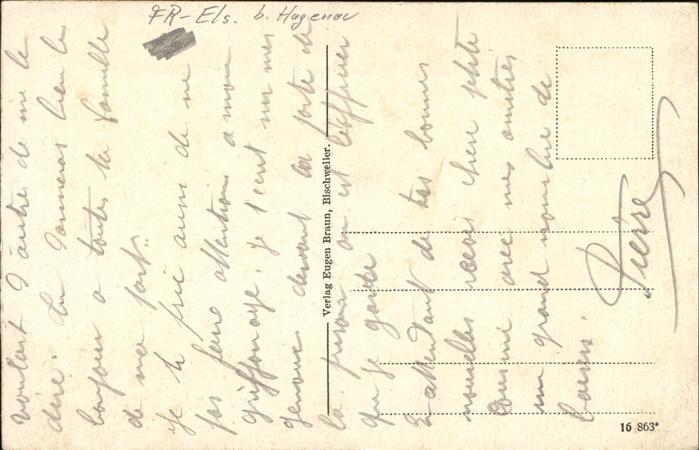 FR-Els. b. Hagenau
voulant d'autre de me le
dire. Tu donneras bien le
bonjour a toutes ta famille
de ma part.
Je te prie aussi de ne
pas faire attention a mon
griffonage. Je t'ecrit sur mes
genoux devant la porte de
la prison ou est
que je garde
de tes bonnes
nouvelles recois chere petite
cousine avec mes amitiés
un grand nombre de
baisers.
Pierre
Verlag Eugen Braun, Bischweiler.
16 863*